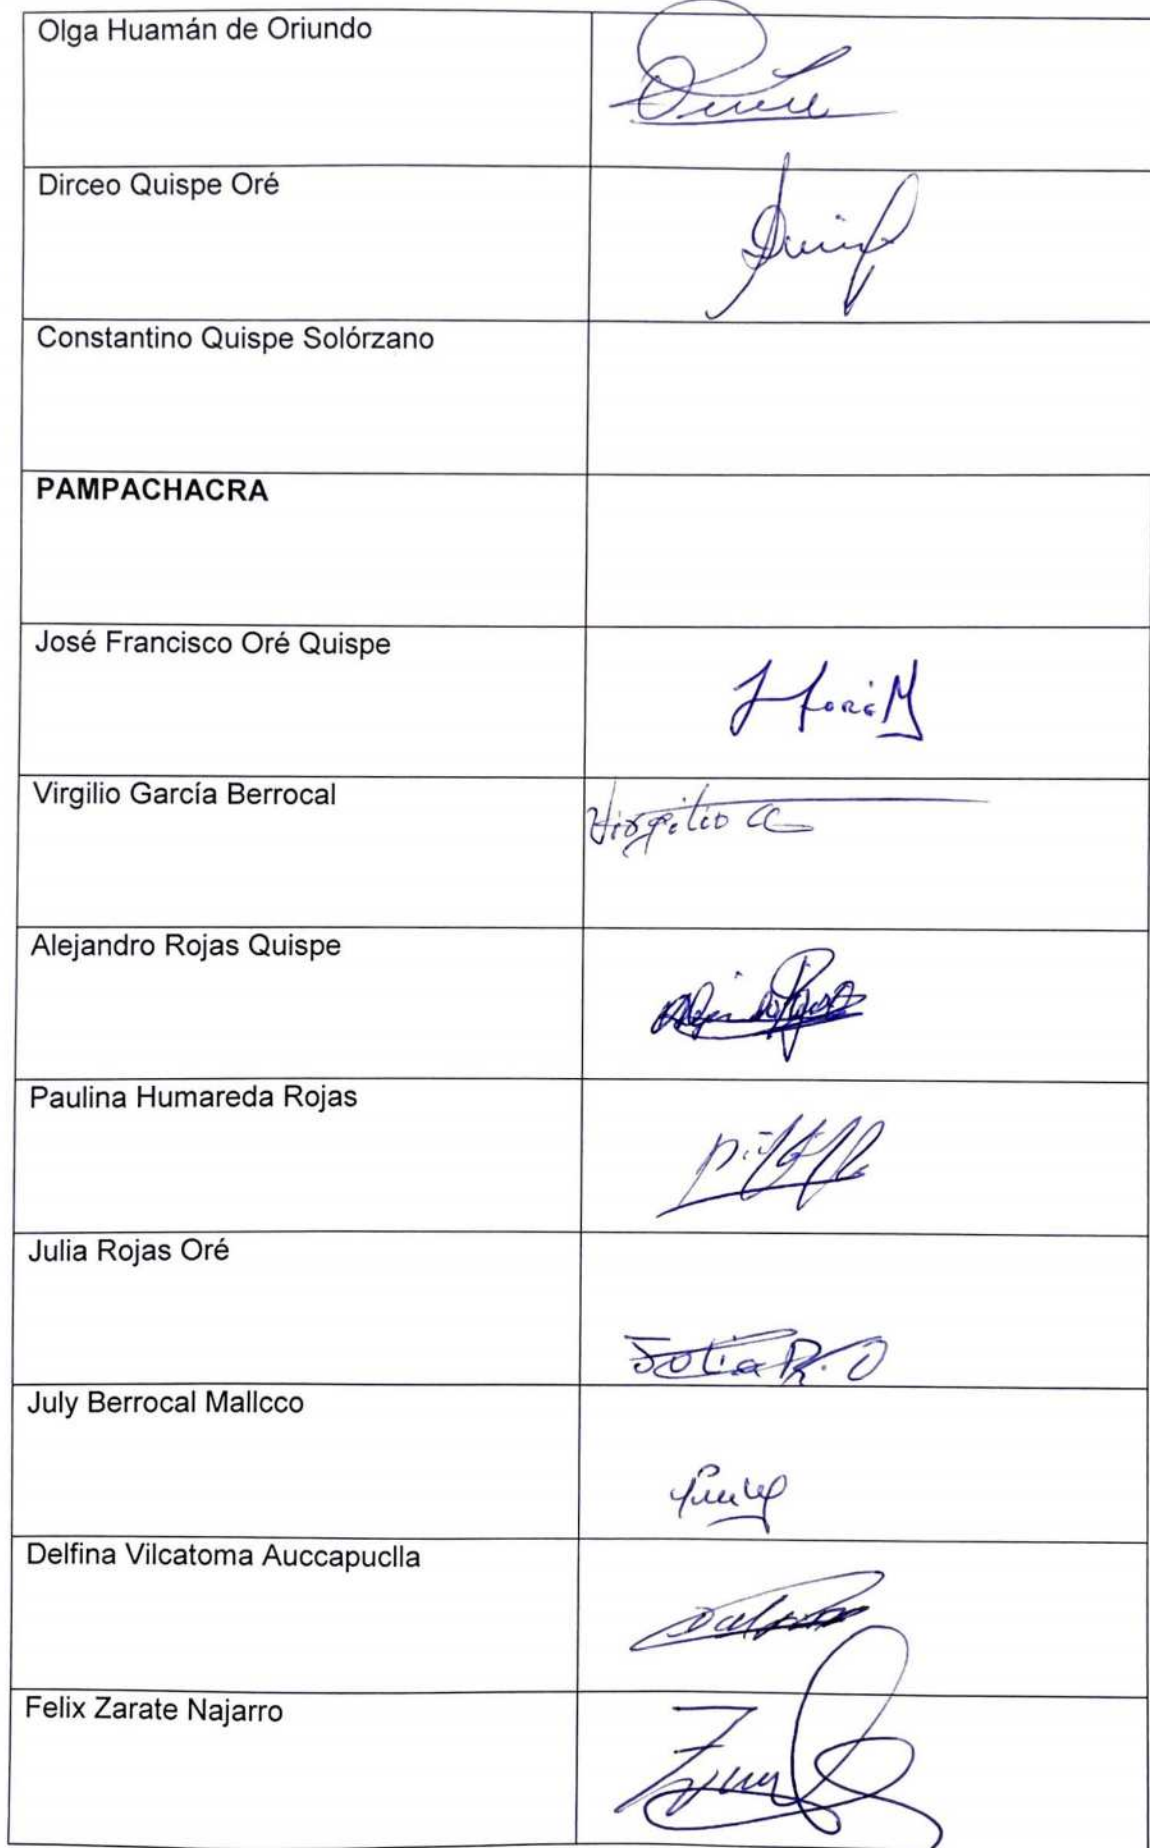 Olga Huamán de Oriundo
Dirceo Quispe Oré
Constantino Quispe Solórzano
PAMPACHACRA
José Francisco Oré Quispe
Virgilio García Berrocal
Virgilio
Alejandro Rojas Quispe
Paulina Humareda Rojas
Julia Rojas Oré
Julia R. O
July Berrocal Mallcco
Delfina Vilcatoma Auccapuclla
Felix Zarate Najarro